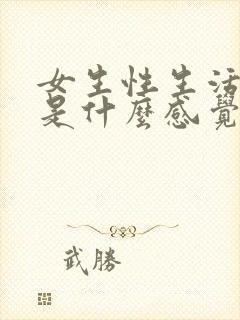 女生性生活
是什麼感覺
武勝